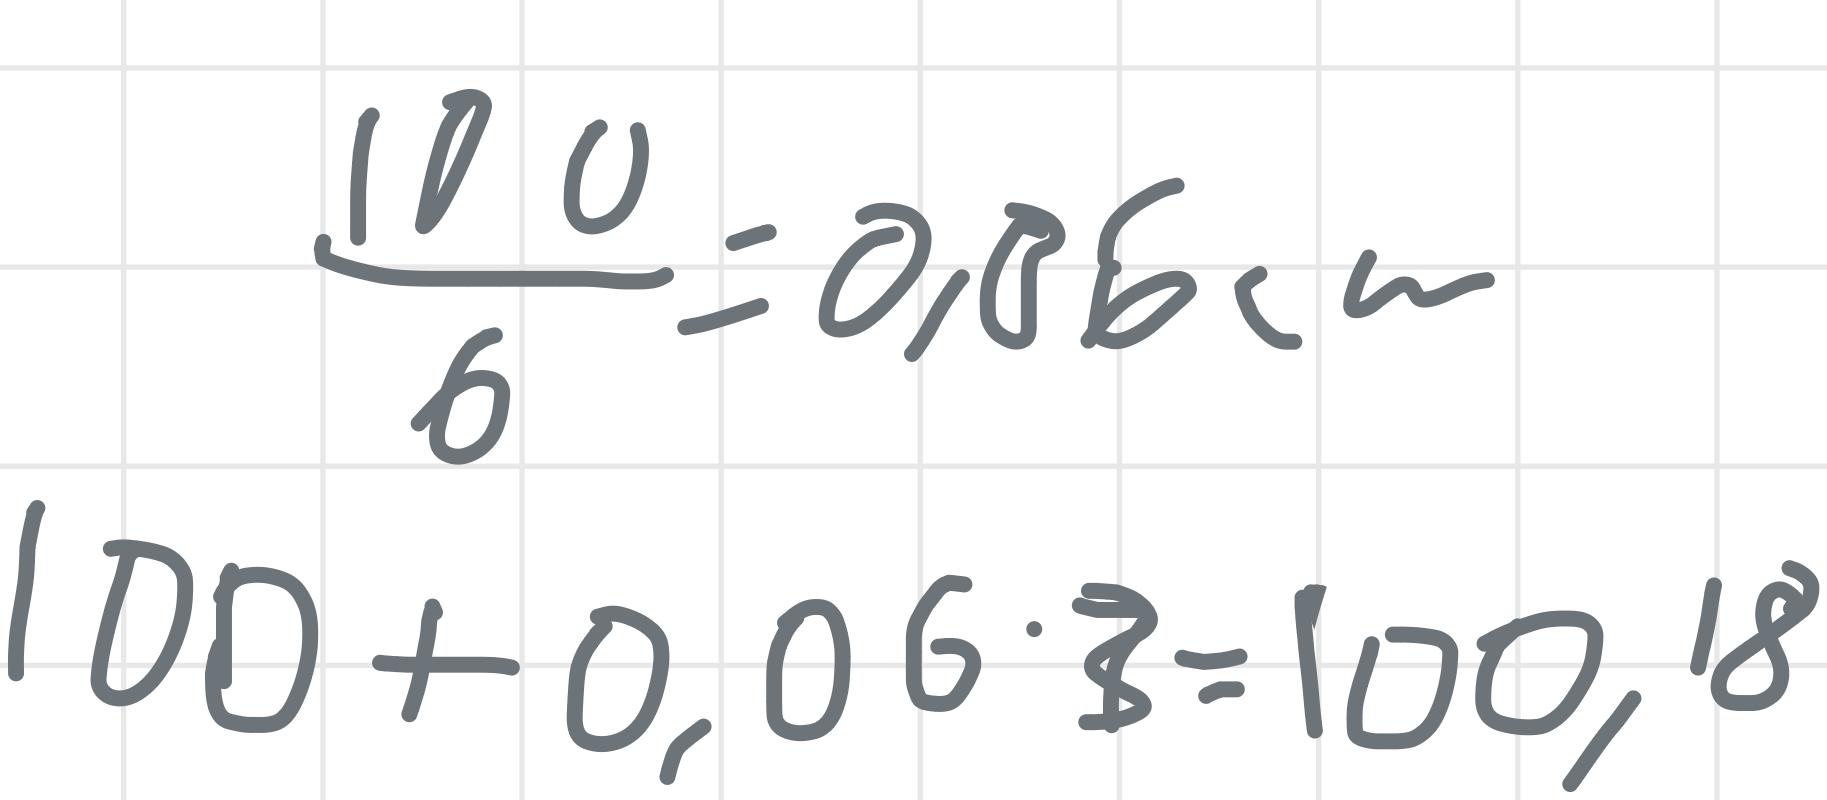 100/6 = 0,06 cm
100 + 0,06 · 3 = 100,18